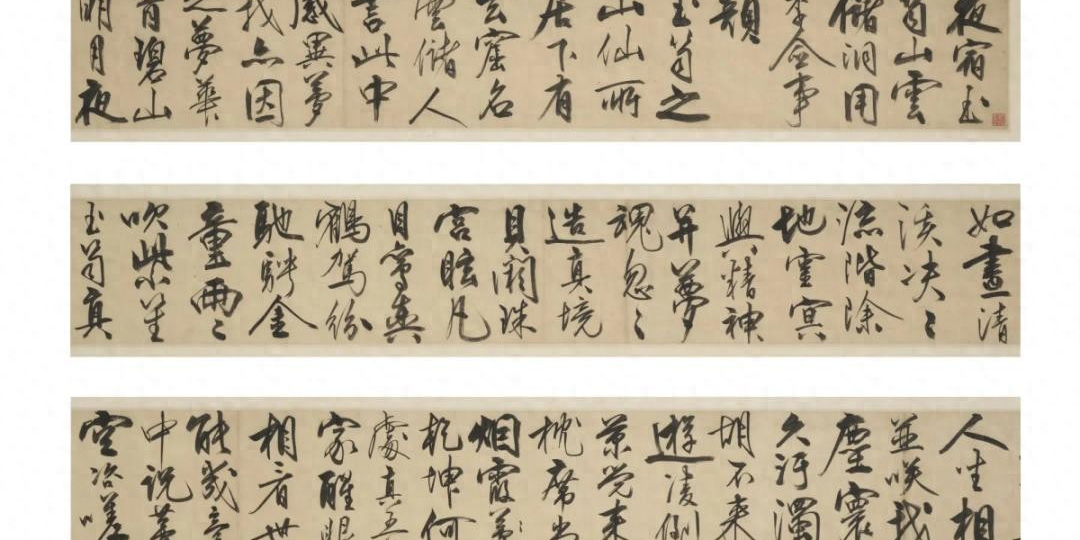 夜宿玉
笥山雲
儲洞用
李僉事
韻
玉笥之
山仙所
居下有
玄窟名
雲儲人
言此中
感異夢
我亦因
之夢華
胥碧山
明月夜
如晝清
溪泱〻
流階除
地靈冥
與精神
并夢
魂忽〻
造真境
貝闕珠
宮眩凡
目鸞輿
鶴駕紛
馳騁金
童兩〻
吹紫笙
玉笥真
人坐相
並咲我
塵寰
久汙濁
胡不来
遊凌倒
景覺来
枕席尚
烟霞
乾坤何
處真吾
家醒眼
相看世
能幾
中說夢
空咨嗟